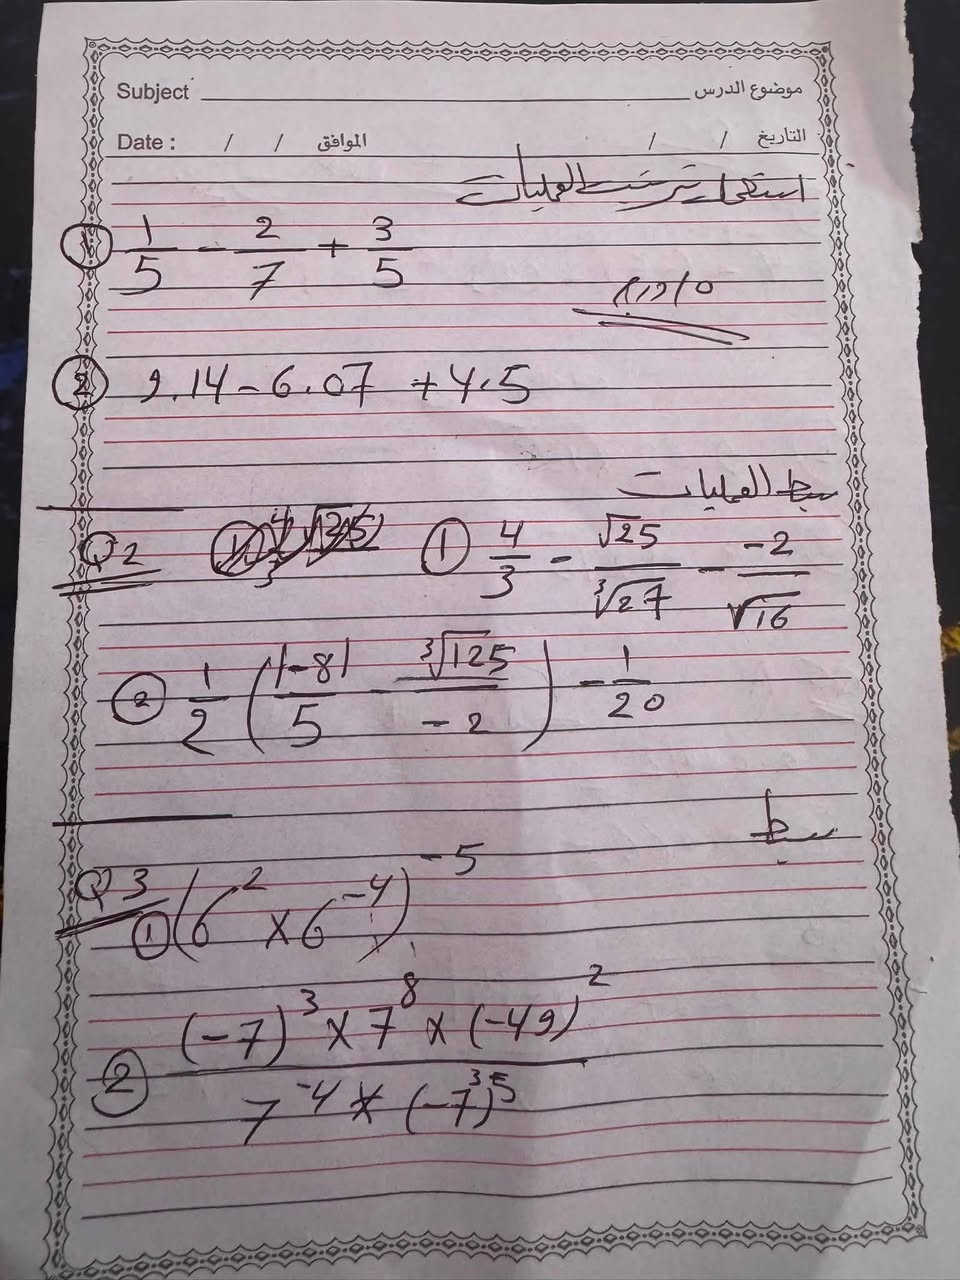 Subject موضوع الدرس
Date : / / الموافق / / التاريخ
استعمل ترتيب العمليات
① 1/5 - 2/7 + 3/5
② 9.14 - 6.07 + 4.5
بسط العمليات
Q2 ① 4/3 - √25/∛27 - -2/√16
② 1/2 (|-8|/5 - ∛125/-2) - 1/20
بسط
Q3
① (6² × 6⁻⁴)⁻⁵
② (-7)³ × 7⁸ × (-49)² / 7⁻⁴ × (-7³)⁵